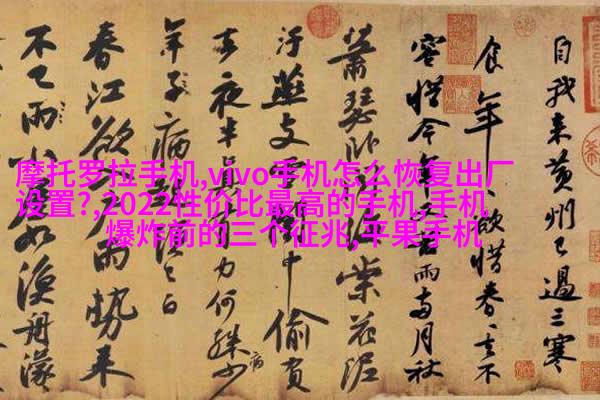 摩托罗拉手机,vivo手机怎么恢复出厂
设置?,2022性价比最高的手机,手机
爆炸前的三个征兆,苹果手机
自我来黄州已過三寒
食年々欲惜春々去不
容惜今年又苦雨兩月秋
蕭瑟卧聞海棠花泥
汙燕支雪闇中偷負
去夜半真有力何殊少
病
年子病起已白
春江欲入戶雨勢来
不已雨小屋如漁舟濛